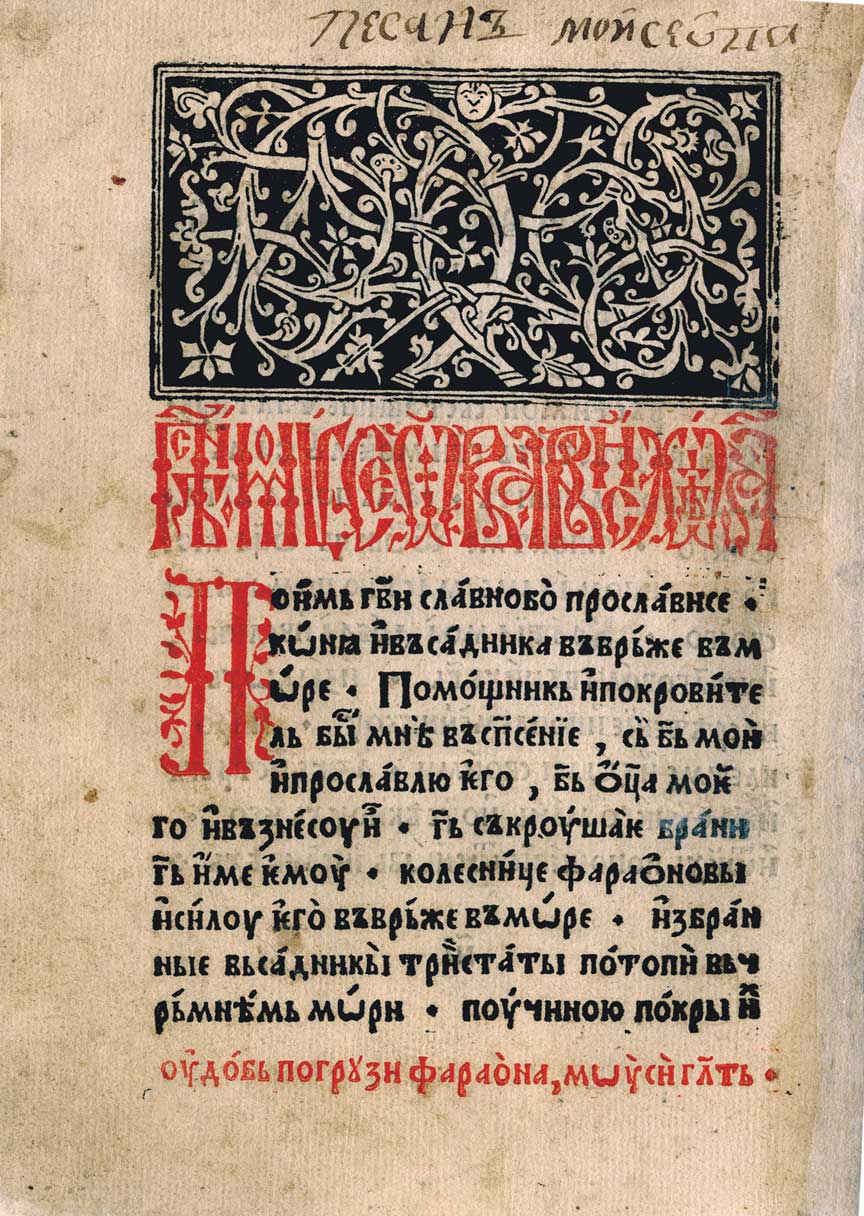 Песанъ мойсеова
Пои҆́мь гв҃и сла́внобо̀ просла́висе ·
кѡ́нꙗ и҆въса́дника въврь́же въм
ѡ́ре · Помо́щникь и҆покрови́те
ль бы́ⷭ҇ мнѣ̀ въсп҃се́нїе , сь̀ б҃ь мои҆
и҆просла́влю ѥ҆го , б҃ь ѻ҆ц҃а моѥ
го и҆възне́соуи҆̀ · г҃ь съкроу́шаѥ бра́ни
г҃ь и҆́ме ѥ҆моу̀ · колесни́це фараѻ̀новы
и҆си́лоу ѥ҆го̀ въврь́же въмѡ́ре · и҆збра́н
ныѥ вьса́дникы̀ три҆ста́ты по́топѝ вьч
рь́мнѣмь мѡ́ри · поу́чиною по́кры и҆̀
оу҆до́бь погрꙋзи фарао̀на, мѡѵ̈сѝ гл҃ть ·